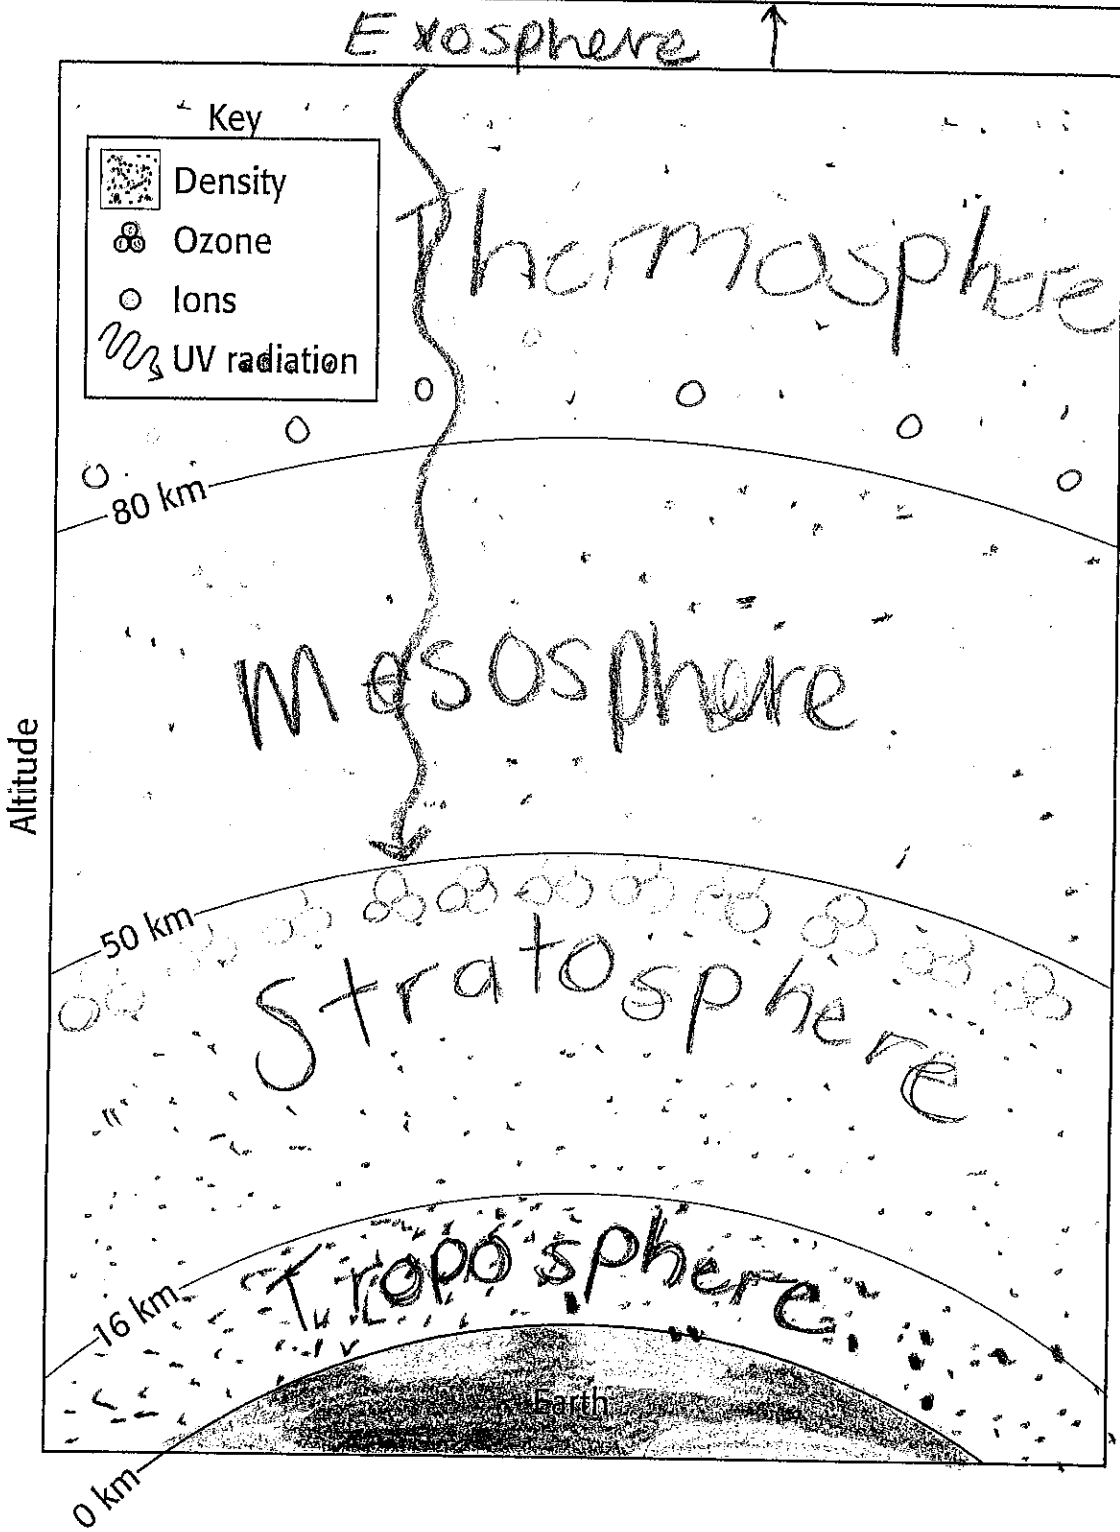 Exosphere
Key
Density
Ozone
Ions
UV radiation
Thermosphere
80 km
Mesosphere
Altitude
50 km
Stratosphere
Troposphere
16 km
Earth
0 km